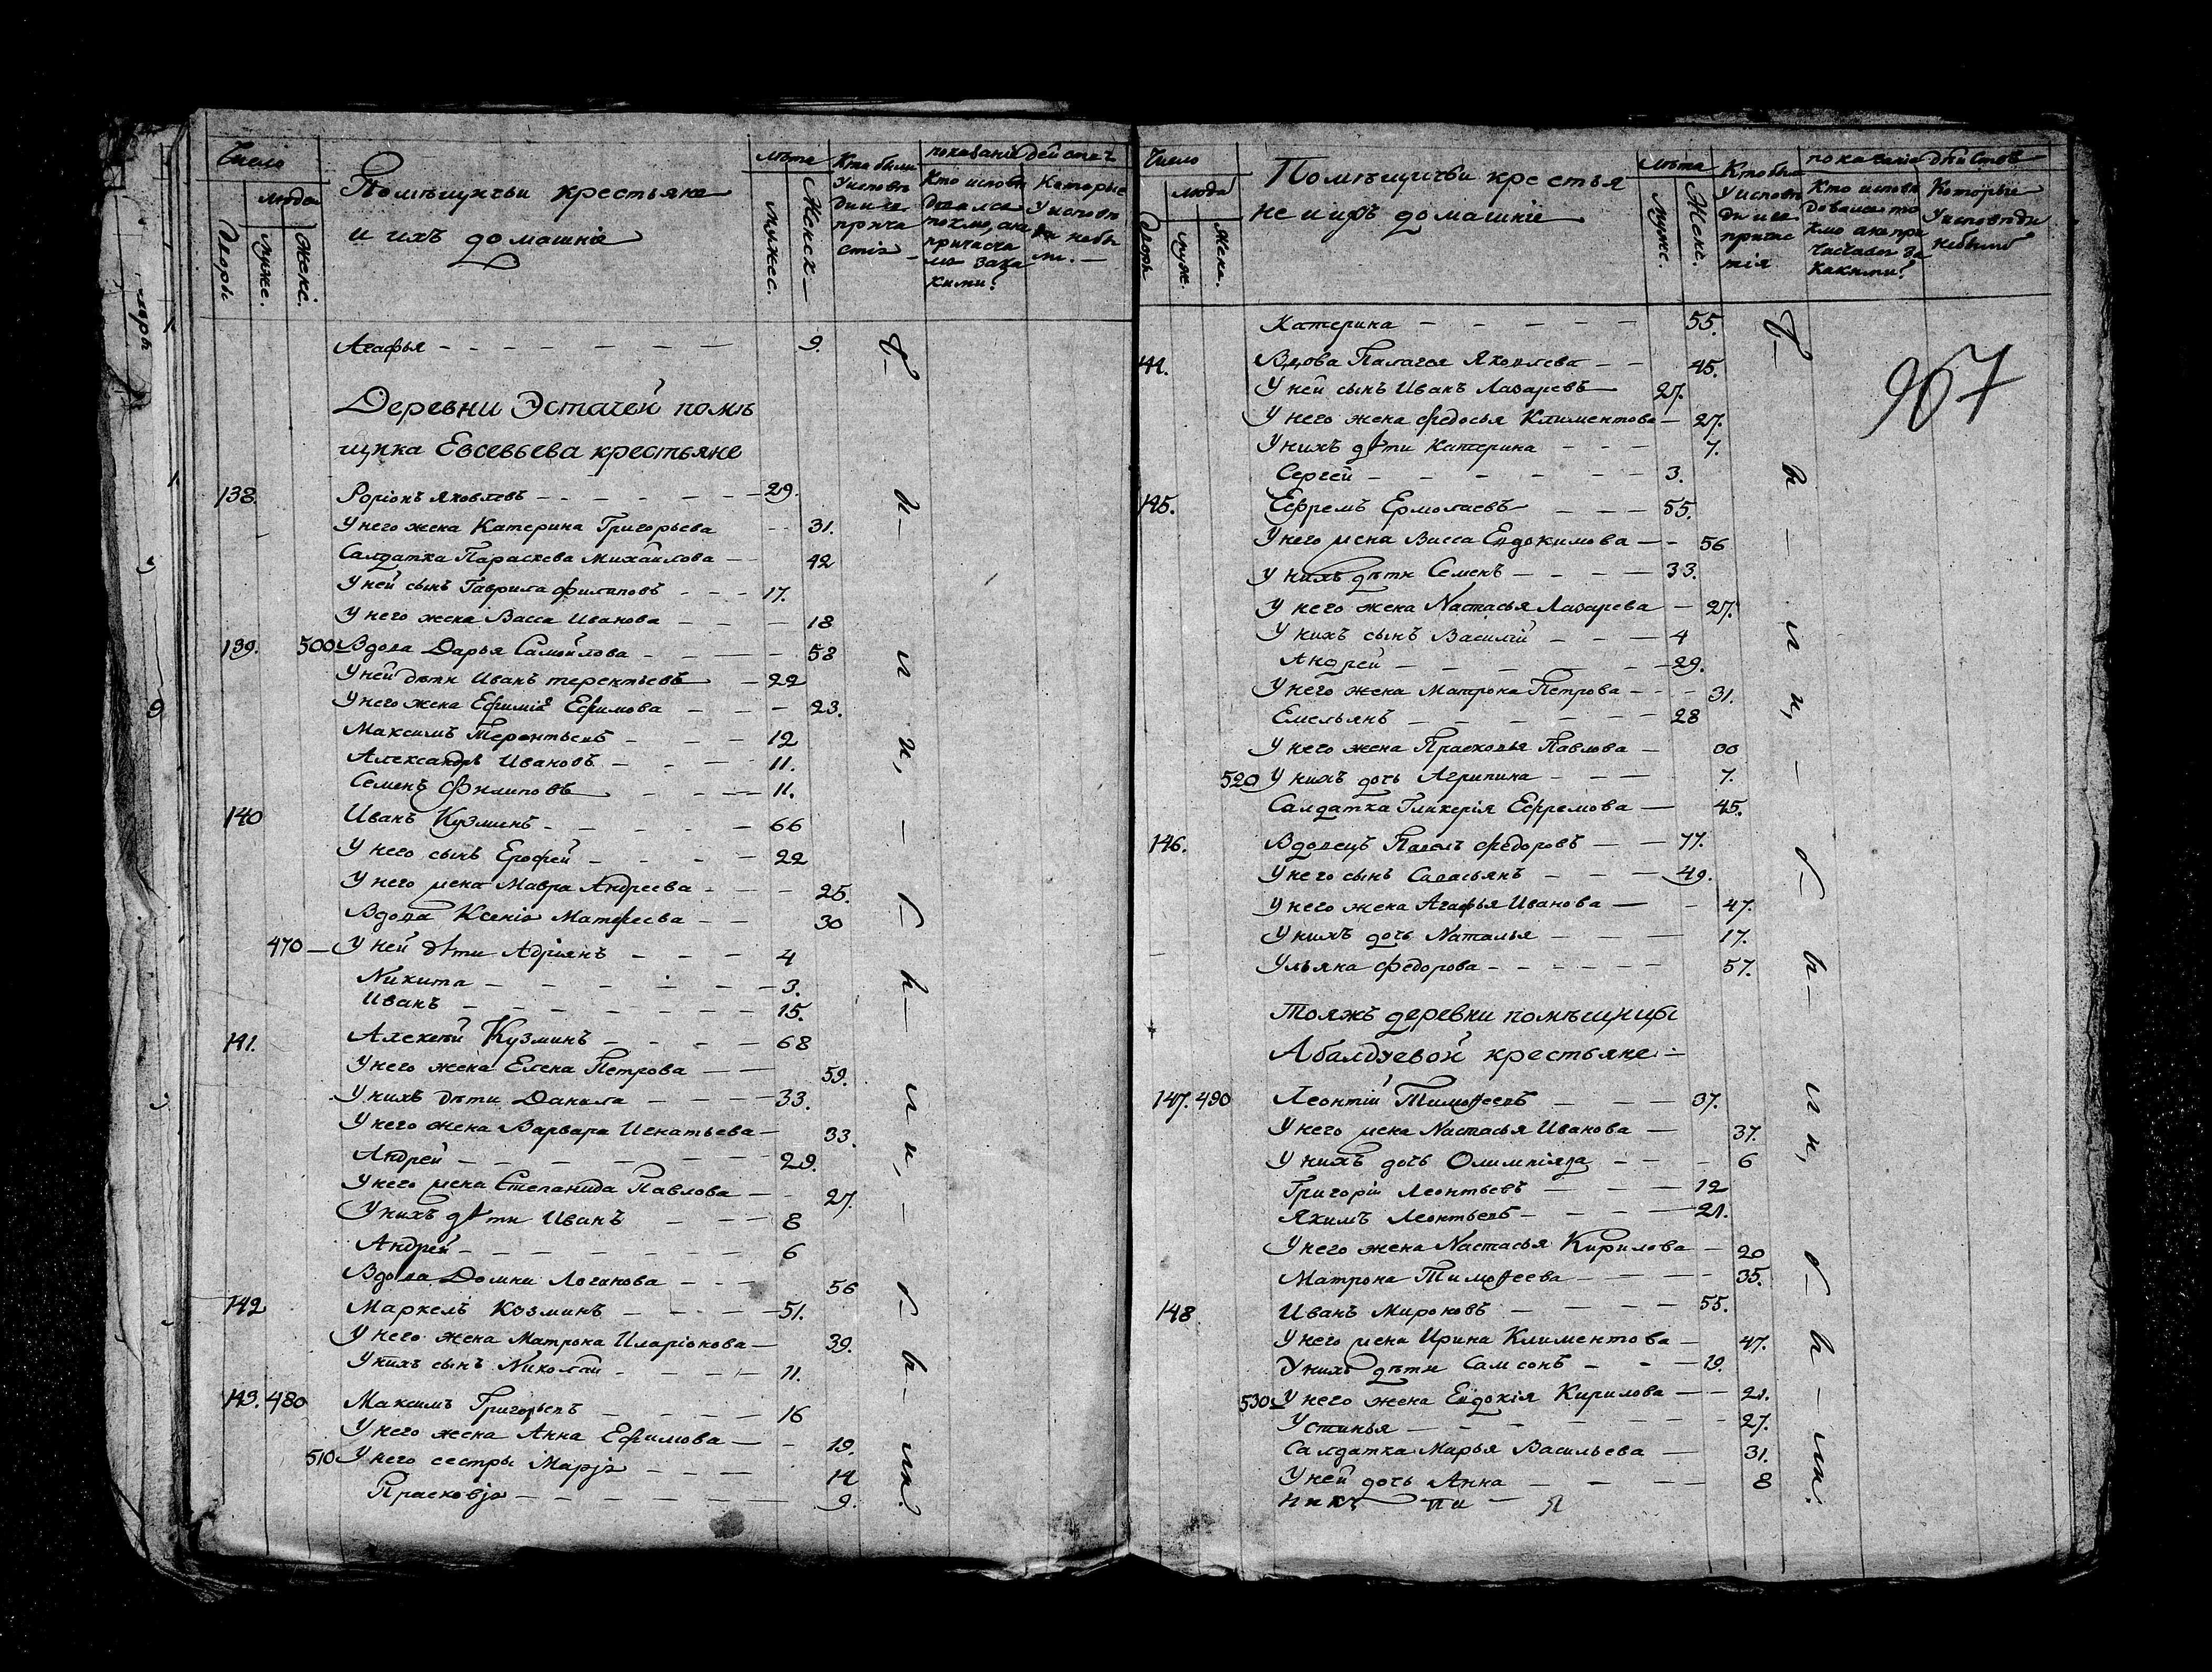 Число
люди
Дворы
мужс.
женс.
Помѣщичьи крестьяне
и ихъ домашніе
лѣта
мужес.
Женск
Кто были
У исповѣ
ди и св.
прича
стія
показаніе дѣйств
Кто исповѣ
дывался
токмо, а не
причаща
лся за ка
кими?
Которые
У исповѣ
ди небы
ли. —
Агафья — 9.
Деревни Эстачей помѣ
щика Евсевьева крестьяне
138. Родіонъ Яковлевъ — 29.
У него жена Катерина Григорьева — 31.
Салдатка Параскева Михайлова — 42
У ней сынъ Гаврила Филиповъ — 17.
У него жена Васса Иванова — 18
139. 500 Вдова Дарья Самойлова — 58
У ней дѣти Иванъ Терентьевъ — 22
У него жена Ефимія Ефимова — 23.
Максимъ Терентьевъ — 12
Александръ Ивановъ — 11.
Семенъ Филиповъ — 11.
140 Иванъ Кузминъ — 66
У него сынъ Ерофей — 22
У него жена Мавра Андреева — 25.
Вдова Ксенія Матфеева — 30
470 — У ней дѣти Адріянъ — 4
Никита — 3.
Иванъ — 15.
141. Алексѣй Кузминъ — 68
У него жена Елена Петрова — 59.
У нихъ дѣти Данила — 33.
У него жена Варвара Игнатьева — 33.
Андрей — 29.
У него жена Степанида Павлова — 27.
У нихъ дѣти Иванъ — 8
Андрей — 6
Вдова Домна Логинова — 56
142 Маркелъ Козминъ — 51.
У него жена Матрона Иларіонова — 39.
У нихъ сынъ Николай — 11.
143. 480 Максимъ Григорьевъ — 16
У него жена Анна Ефимова — 19.
510 У него сестры Марья — 14
Прасковья — 9.
Число
люди
Дворы
муж.
жен.
Помѣщичьи крестья
не и ихъ домашніе
лѣта
мужс.
Женс.
Кто был
У исповѣ
ди и св.
причас
тія
показаніе дѣйств
Кто испов
довался то
кмо а не при
чащался за
какими?
Которые
У исповѣди
небыли
267
Катерина — 55.
144. Вдова Палагея Яковлева — 45.
У ней сынъ Иванъ Лазаревъ — 27.
У него жена Федосья Климентова — 27.
У нихъ дѣти Катерина — 7.
Сергей — 3.
145. Ефремъ Ермолаевъ — 55.
У него жена Васса Евдокимова — 56
У нихъ дѣти Семенъ — 33.
У него жена Настасья Лазарева — 27.
У нихъ сынъ Василій — 4
Андрей — 29.
У него жена Матрона Петрова — 31.
Емельянъ — 28
У него жена Прасковья Павлова — 30
520 У нихъ дочь Агрипина — 7.
Салдатка Гликерія Ефремова — 45.
146. Вдовецъ Павелъ Федоровъ — 77.
У него сынъ Савасьянъ — 49.
У него жена Агафья Иванова — 47.
У нихъ дочь Наталья — 17.
Ульяна Федорова — 57.
Тояжъ деревни помѣщицы
Абалдуевой крестьяне —
147. 490 Леонтій Тимофеевъ — 37.
У него жена Настасья Иванова — 37.
У нихъ дочь Олимпіяда — 6
Григорій Леонтьевъ — 12
Якимъ Леонтьевъ — 21.
У него жена Настасья Кирилова — 20
Матрона Тимофеева — 35.
148 Иванъ Мироновъ — 55.
У него жена Ирина Климентова — 47.
У нихъ дѣти Самсонъ — 19.
530 У него жена Евдокія Кирилова — 21.
Устинья — 27.
Салдатка Марья Васильева — 31.
У ней дочь Анна — 8